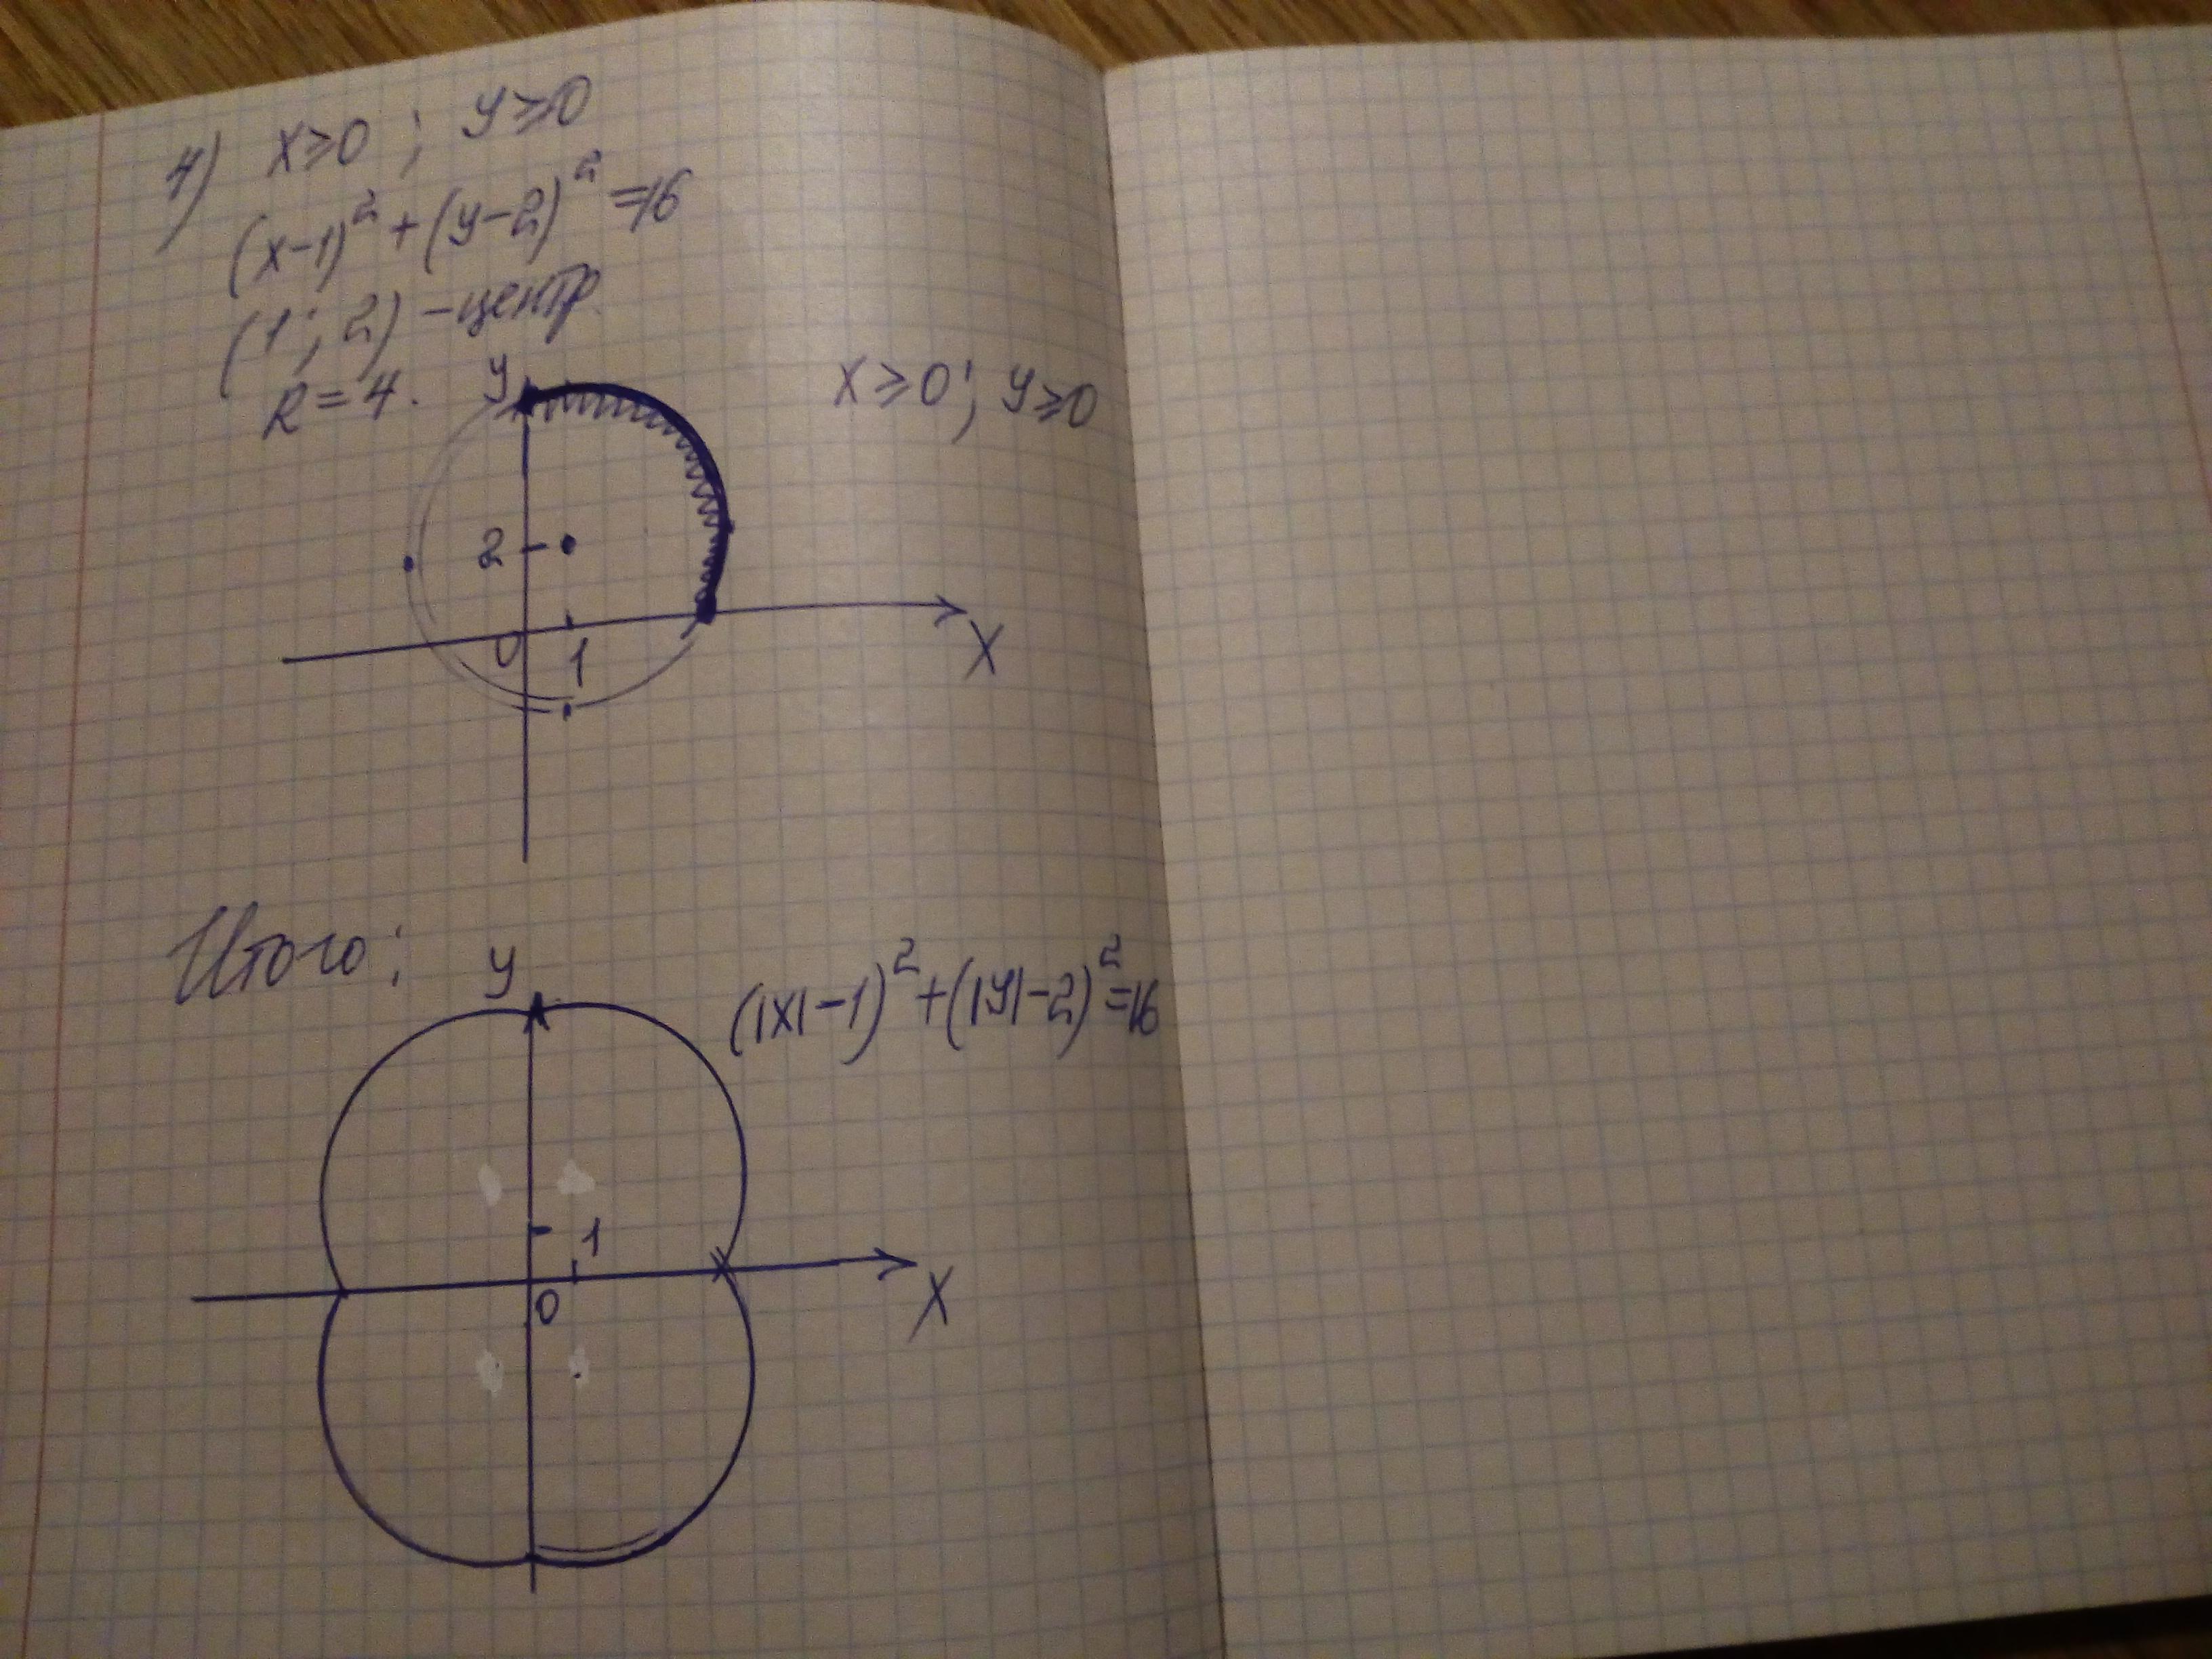 4) x≥0 ; y≥0
(x-1)² + (y-2)² =16
(1 ; 2) - центр.
R = 4.
y
x≥0 ; y≥0
2
0
1
x
Итого:
y
(|x|-1)² + (|y|-2)² =16
1
0
x